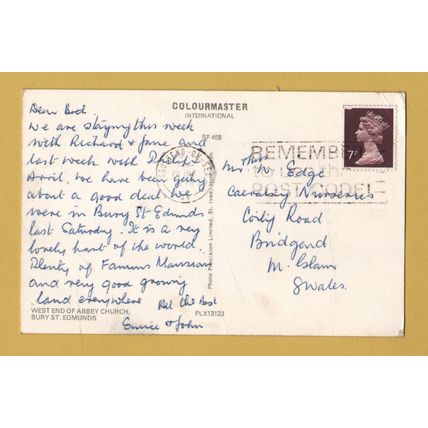 COLOURMASTER
INTERNATIONAL
SF 455
Dear Bud.
We are staying this week
with Richard & Jane and
last week with
April. We have been getting
about a good deal. We
were in Bury St Edmunds
last Saturday. It is a very
lovely part of the world.
Plenty of Famous Mansions
and very good growing
land everywhere
All the Best
Eunice & John
WEST END OF ABBEY CHURCH,
BURY ST. EDMUNDS
PLX13123
Photo Precision Limited, St. Ives
SOUTHEND-ON-SEA
REMEMBER
POSTCODE!
7P
Edge
Nurseries
Coity Road
Bridgend
M. Glam
S Wales.